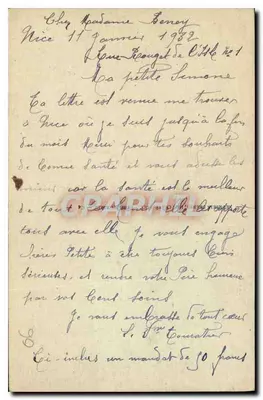 Chez Madame
Nice 11 Janvier 1932
Rue Rouget de L'Isle No 1
Ma petite Simone
Ta lettre est venue me trouver
à Nice où je suis jusqu'à la fin
du mois Merci pour tes souhaits
de bonne santé et vous adresse les
miens car la santé est le meilleur
de tous elle apporte
tout avec elle, je vous engage
chères Petite à être toujours bien
sérieuses et rendre votre Père heureux
par vos bons soins,
Je vous embrasse de tout cœur
Ci-inclus un mandat de 50 francs
CPA